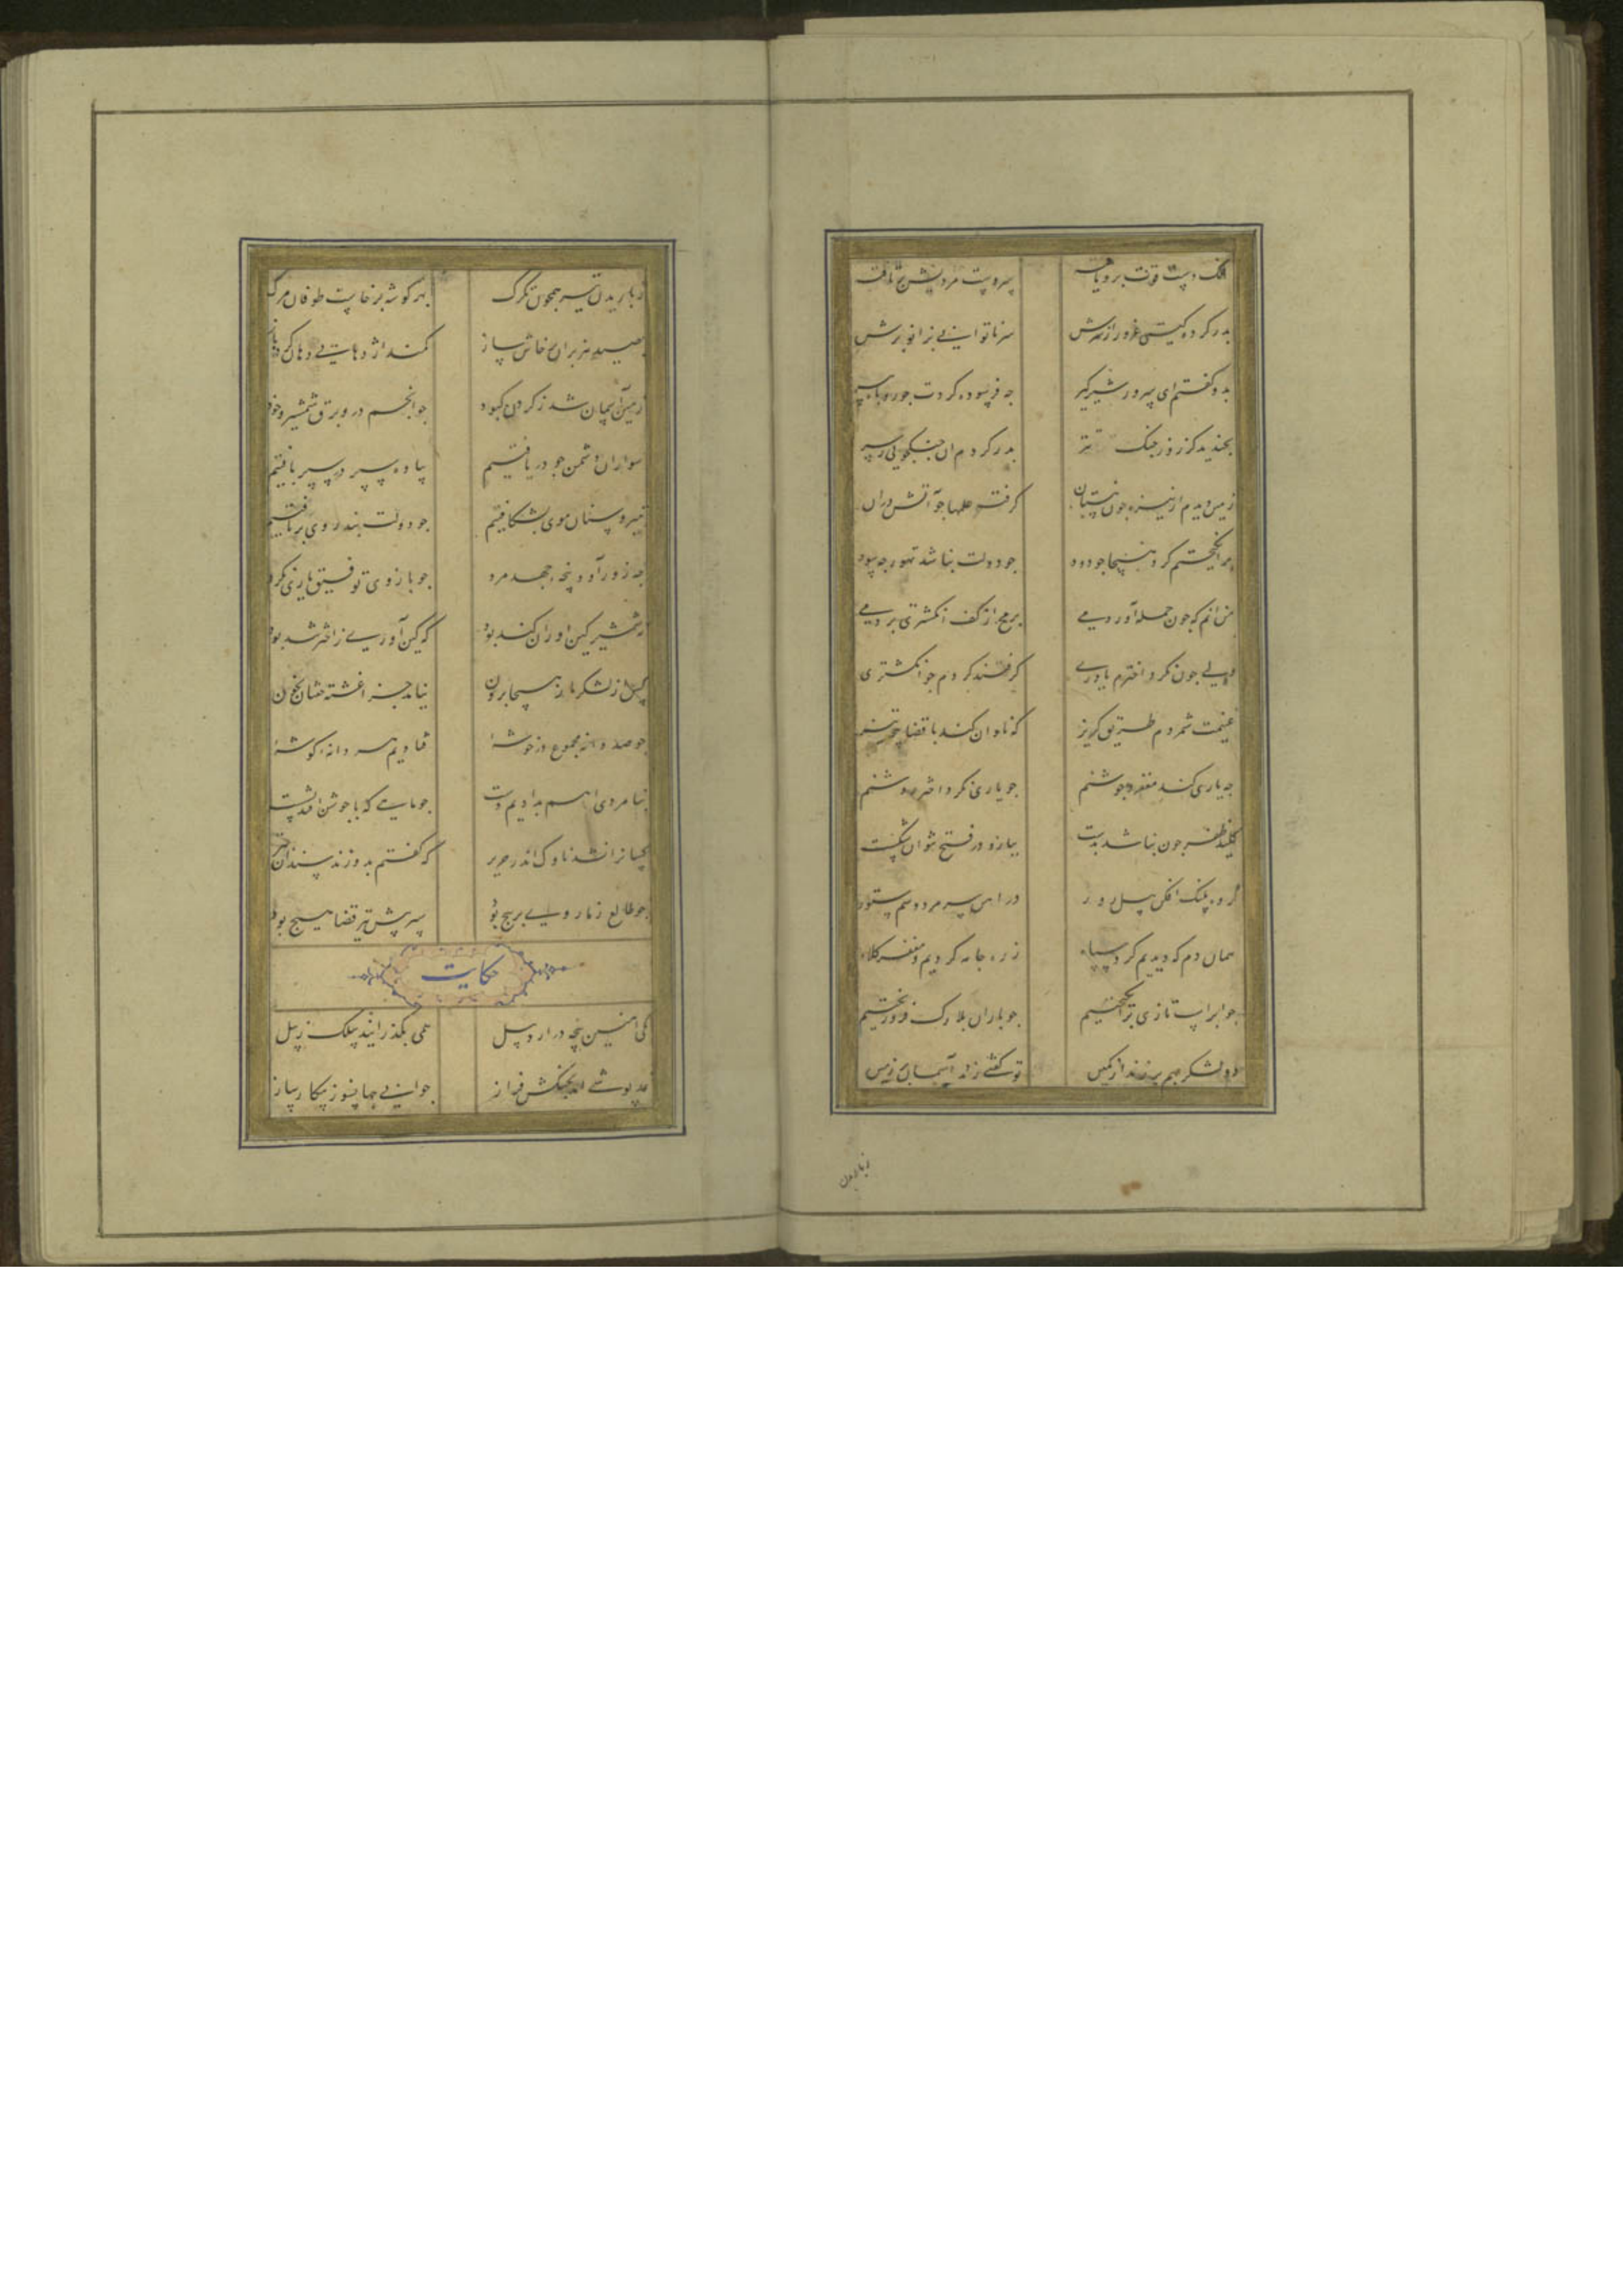 فلک دست قوت برو یافته سر دست مردیش برتافته
بدر کرده کیتی غرور از سرش سر ناتوانی بزانو برش
بدو کفتم ای سرور شیر کیر جه فرسوده کردت جو روباه پیر
بخندید کز روز جنک تتر بدر کردم ان جنکجویی ز سر
زمین دیدم از نیزه جون نیستان کرفته علمها جو آتش دران
بر انکیختم کرد هیجا جو دود جو دولت نباشد تهور جه سود
من انم که جون حمله آوردمی برمح از کف انکشتری بردمی
ولی جون نکرد اخترم یاوری کرفتند کردم جو انکشتری
غنیمت شمردم طریق کریز که نادان کند با قضا پنجه تیز
جه یاری کند مغفر و جوشنم جو یاری نکرد اختر روشنم
کلید ظفر جون نباشد بدست ببازو در فتح نتوان شکست
کروه پلنک افکن پیل زور در اهن سر مرد و سم ستور
همان دم که دیدیم کرد سپاه زره جامه کردیم و مغفر کلاه
جو ابر اسب تازی بر انکیختیم جو باران بلارک فرو ریختیم
دو لشکر بهم بر زدند از کمین تو کفتی زدند آسمان بر زمین
ز باریدن
ز باریدن تیر همجون تکرک بهر کوشه برخاست طوفان مرک
بصید هزبران پرخاش ساز کمند اژدهای دهان کرده باز
زمین آسمان شد ز کرد کبود جو انجم درو برق شمشیر و خود
سواران دشمن جو دریافتیم پیاده سپر در سپر بافتیم
بتیر و سنان موی بشکافتیم جو دولت نبد روی برتافتیم
جه زور آورد پنجه جهد مرد جو بازوی توفیق یاری نکرد
نه شمشیر کین اوران کند بود که کین آوری ز اختر تند بود
کس از لشکر ما ز هیجا برون نیامد جز اغشته خفتان بخون
جو صد دانه مجموع در خوشه فتادیم هر دانه کوشه
بنامردی از هم بدادیم دست جو ماهی که با جوشن افتد بشست
کسانرا نشد ناوک اندر حریر که کفتم بدوزند سندان بتیر
جو طالع ز ما روی بر پیج بود سپر پیش تیر قضا هیج بود
حکایت
یکی اهنین پنجه در اردبیل همی بکذرانید بیلک ز پیل
نمد پوشی امد بجنکش فراز جوانی جهانسوز پیکار ساز